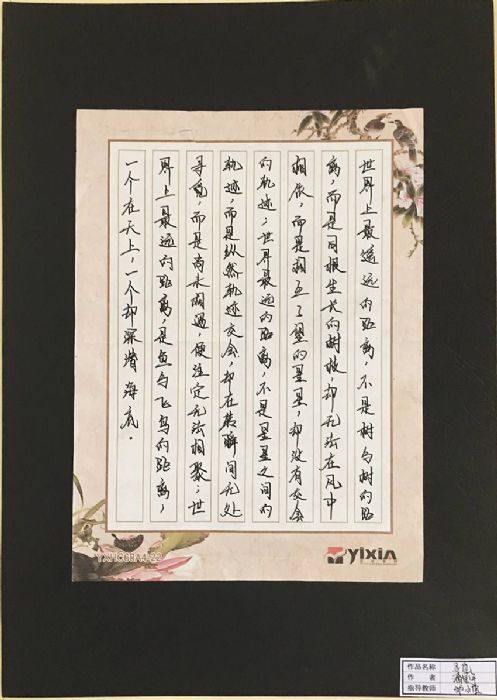 世界上最遥远的距离，不是树与树的距
离，而是同根生长的树枝，却无法在风中
相依，而是相互了望的星星，却没有交会
的轨迹；世界最远的距离，不是星星之间的
轨迹，而是纵然轨迹交会，却在转瞬间无处
寻觅，而是尚未相遇，便注定无法相聚；世
界上最远的距离，是鱼与飞鸟的距离，
一个在天上，一个却深潜海底.
YXHC68A4-22
YIXIN
作品名称
作 者
指导教师